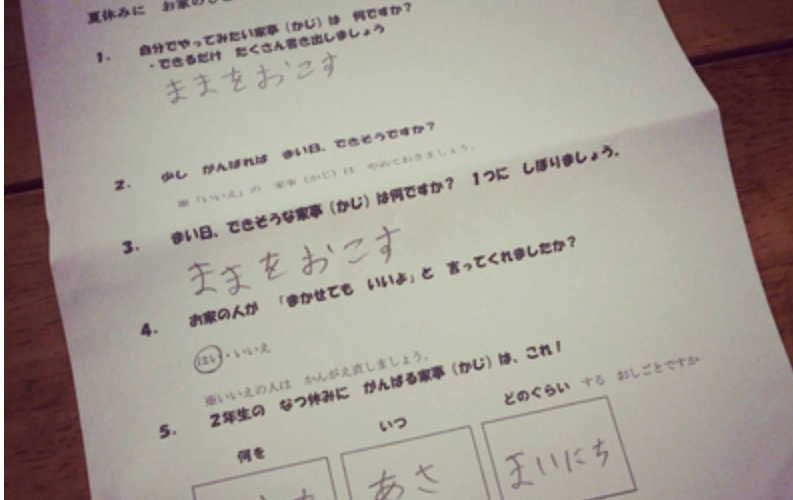 夏休みに お家の
1. 自分でやってみたい家事（かじ）は 何ですか？
・できるだけ たくさん書き出しましょう
ままをおこす
2. 少し がんばれば まい日、できそうですか？
※「いいえ」の 家事（かじ）は やめておきましょう。
3. まい日、できそうな家事（かじ）は何ですか？ 1つに しぼりましょう。
ままをおこす
4. お家の人が 「まかせても いいよ」と 言ってくれましたか？
はい・いいえ
※いいえの人は かんがえ直しましょう。
5. 2年生の なつ休みに がんばる家事（かじ）は、これ！
何を いつ どのぐらい する おしごとですか
あさ まいにち